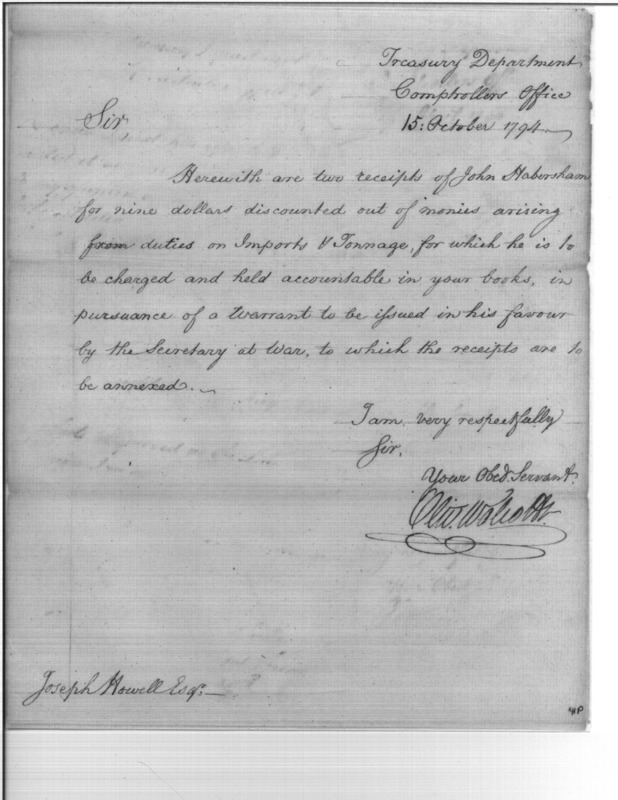 Treasury Department
Comptrollers Office
15: October 1794
Sir
Herewith are two receipts of John Habersham
for nine dollars discounted out of monies arising
from duties on Imports & Tonnage, for which he is to
be charged and held accountable in your books, in
pursuance of a Warrant to be issued in his favour
by the Secretary at War, to which the receipts are to
be annexed.
I am, very respectfully
Sir,
Your Obed. Servant.
Oliv. Wolcott
Joseph Howell Esqr.